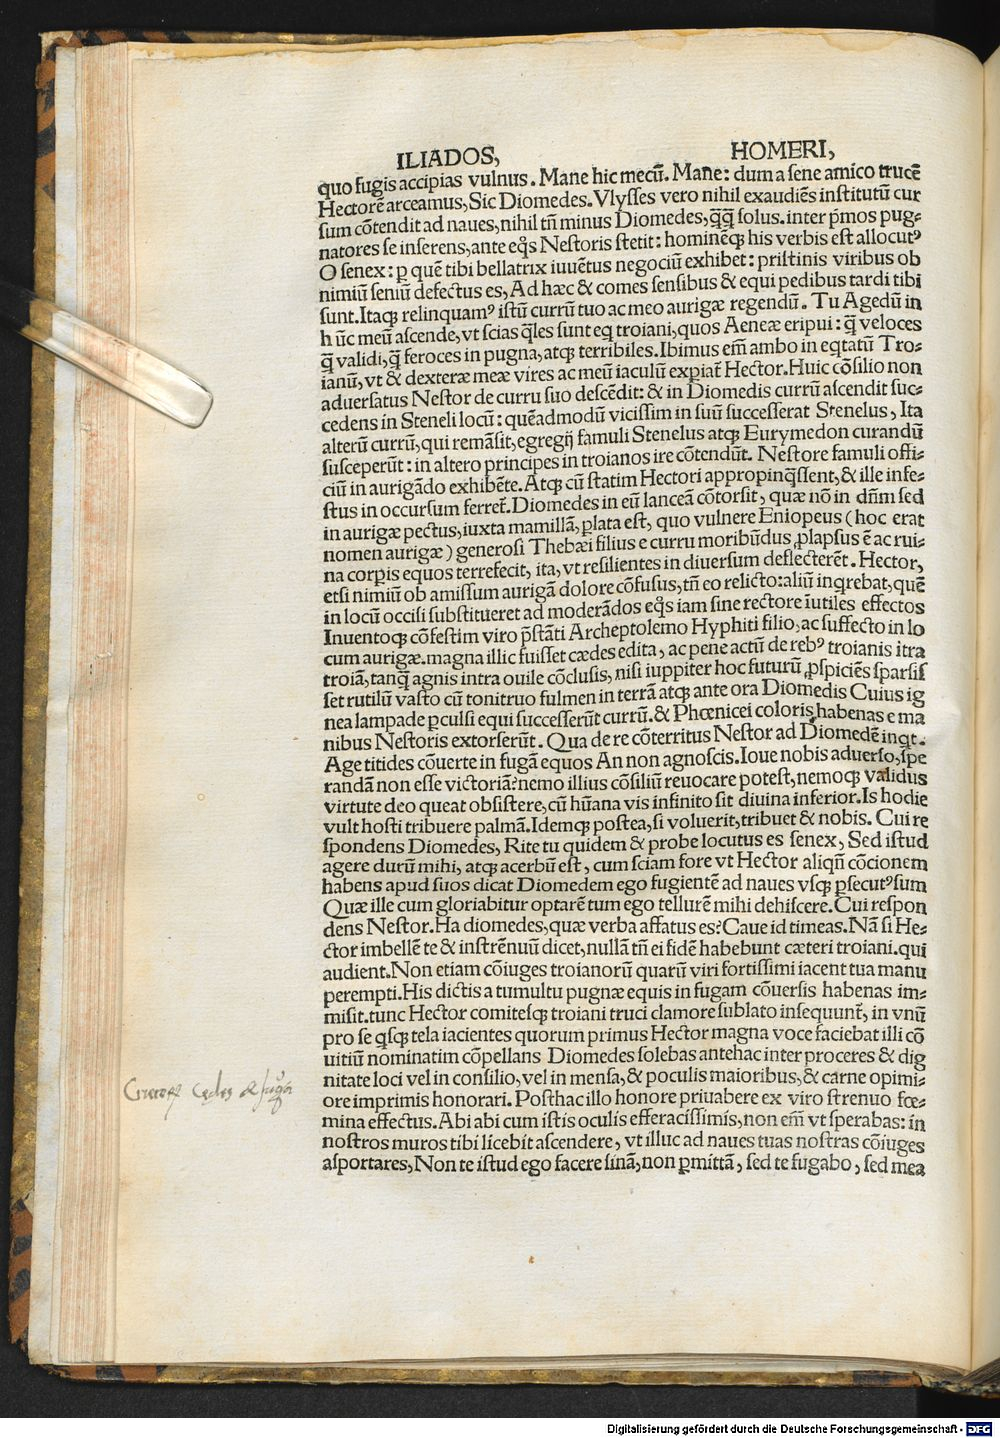 ILIADOS, HOMERI,
quo fugis accipias vulnus. Mane hic mecū. Mane: dum a sene amico trucē
Hectorē arceamus, Sic Diomedes. Vlysses vero nihil exaudiēs institutū cur
sum cōtendit ad naues, nihil tñ minus Diomedes, q̄q̄ solus. inter p̄mos pug⸗
natores se inserens, ante eq̊s Nestoris stetit: hominēqꝫ his verbis est allocutꝰ
O senex: ꝑ quē tibi bellatrix iuuētus negociū exhibet: pristinis viribus ob
nimiū seniū defectus es, Ad hæc & comes sensibus & equi pedibus tardi tibi
sunt. Itaqꝫ relinquamꝰ istū currū tuo ac meo aurigæ regendū. Tu Agedū in
h ūc meū ascende, vt scias q̄les sunt eq troiani, quos Aeneæ eripui: q̄ veloces
q̄ validi, q̄ feroces in pugna, atqꝫ terribiles. Ibimus em̄ ambo in eqtatū Tro⸗
ianū, vt & dexteræ meæ vires ac meū iaculū expiat̄ Hector. Huic cōsilio non
aduersatus Nestor de curru suo descēdit: & in Diomedis currū ascendit suc⸗
cedens in Steneli locū: quēadmodū vicissim in suū successerat Stenelus, Ita
alterū currū, qui remāsit, egregij famuli Stenelus atqꝫ Eurymedon curandū
susceperūt: in altero principes in troianos ire cōtendūt. Nestore famuli offi⸗
ciū in aurigādo exhibēte. Atqꝫ cū statim Hectori appropinq̄ssent, & ille infe⸗
stus in occursum ferret̄. Diomedes in eū lanceā cōtorsit, quæ nō in dn̄m sed
in aurigæ pectus, iuxta mamillā, ꝓlata est, quo vulnere Eniopeus (hoc erat
nomen aurigæ) generosi Thebæi filius e curru moribūdus ꝓlapsus ē ac rui⸗
na corꝑis equos terrefecit, ita, vt resilientes in diuersum deflecterēt. Hector,
etsi nimiū ob amissum aurigā dolore cōfusus, tñ eo relicto: aliū inqrebat, quē
in locū occisi substitueret ad moderādos eq̊s iam sine rectore īutiles effectos
Inuentoqꝫ cōfestim viro p̄stāti Archeptolemo Hyphiti filio, ac suffecto in lo
cum aurigæ. magna illic fuisset cædes edita, ac pene actū de rebꝰ troianis itra
troiā, tanq̄ agnis intra ouile cōclusis, nisi iuppiter hoc futurū ꝓspiciēs sparsis
set rutilū vasto cū tonitruo fulmen in terrā atqꝫ ante ora Diomedis Cuius ig
nea lampade ꝑculsi equi successerūt currū. & Phœnicei coloris habenas e ma
nibus Nestoris extorserūt. Qua de re cōterritus Nestor ad Diomedē inqt.
Age titides cōuerte in fugā equos An non agnoscis. Ioue nobis aduerso, spe
randā non esse victoriā? nemo illius cōsiliū reuocare potest, nemoqꝫ validus
virtute deo queat obsistere, cū hūana vis infinito sit diuina inferior. Is hodie
vult hosti tribuere palmā. Idemqꝫ postea, si voluerit, tribuet & nobis. Cui re
spondens Diomedes, Rite tu quidem & probe locutus es senex, Sed istud
agere durū mihi, atqꝫ acerbū est, cum sciam fore vt Hector aliqñ cōcionem
habens apud suos dicat Diomedem ego fugientē ad naues vsqꝫ ꝑsecutꝰ sum
Quæ ille cum gloriabitur optarē tum ego tellurē mihi dehiscere. Cui respon
dens Nestor. Ha diomedes, quæ verba affatus es? Caue id timeas. Nā si He⸗
ctor imbellē te & instrēnuū dicet, nullā tñ ei fidē habebunt cæteri troiani. qui
audient. Non etiam cōiuges troianorū quarū viri fortissimi iacent tua manu
perempti. His dictis a tumultu pugnæ equis in fugam cōuersis habenas im⸗
misit. tunc Hector comitesqꝫ troiani truci clamore sublato insequunt̄, in vnū
pro se qsqꝫ tela iacientes quorum primus Hector magna voce faciebat illi cō
uitiū nominatim cōpellans Diomedes solebas antehac inter proceres & dig
nitate loci vel in consilio, vel in mensa, & poculis maioribus, & carne opimi⸗
ore imprimis honorari. Posthac illo honore priuabere ex viro strenuo fœ⸗
mina effectus. Abi abi cum istis oculis efferacissimis, non em̄ vt sperabas: in
nostros muros tibi licebit ascendere, vt illuc ad naues tuas nostras cōiuges
asportares, Non te istud ego facere sinā, non ꝑmittā, sed te fugabo, sed mea
cędes & fuga
Digitalisierung gefördert durch die Deutsche Forschungsgemeinschaft - DFG